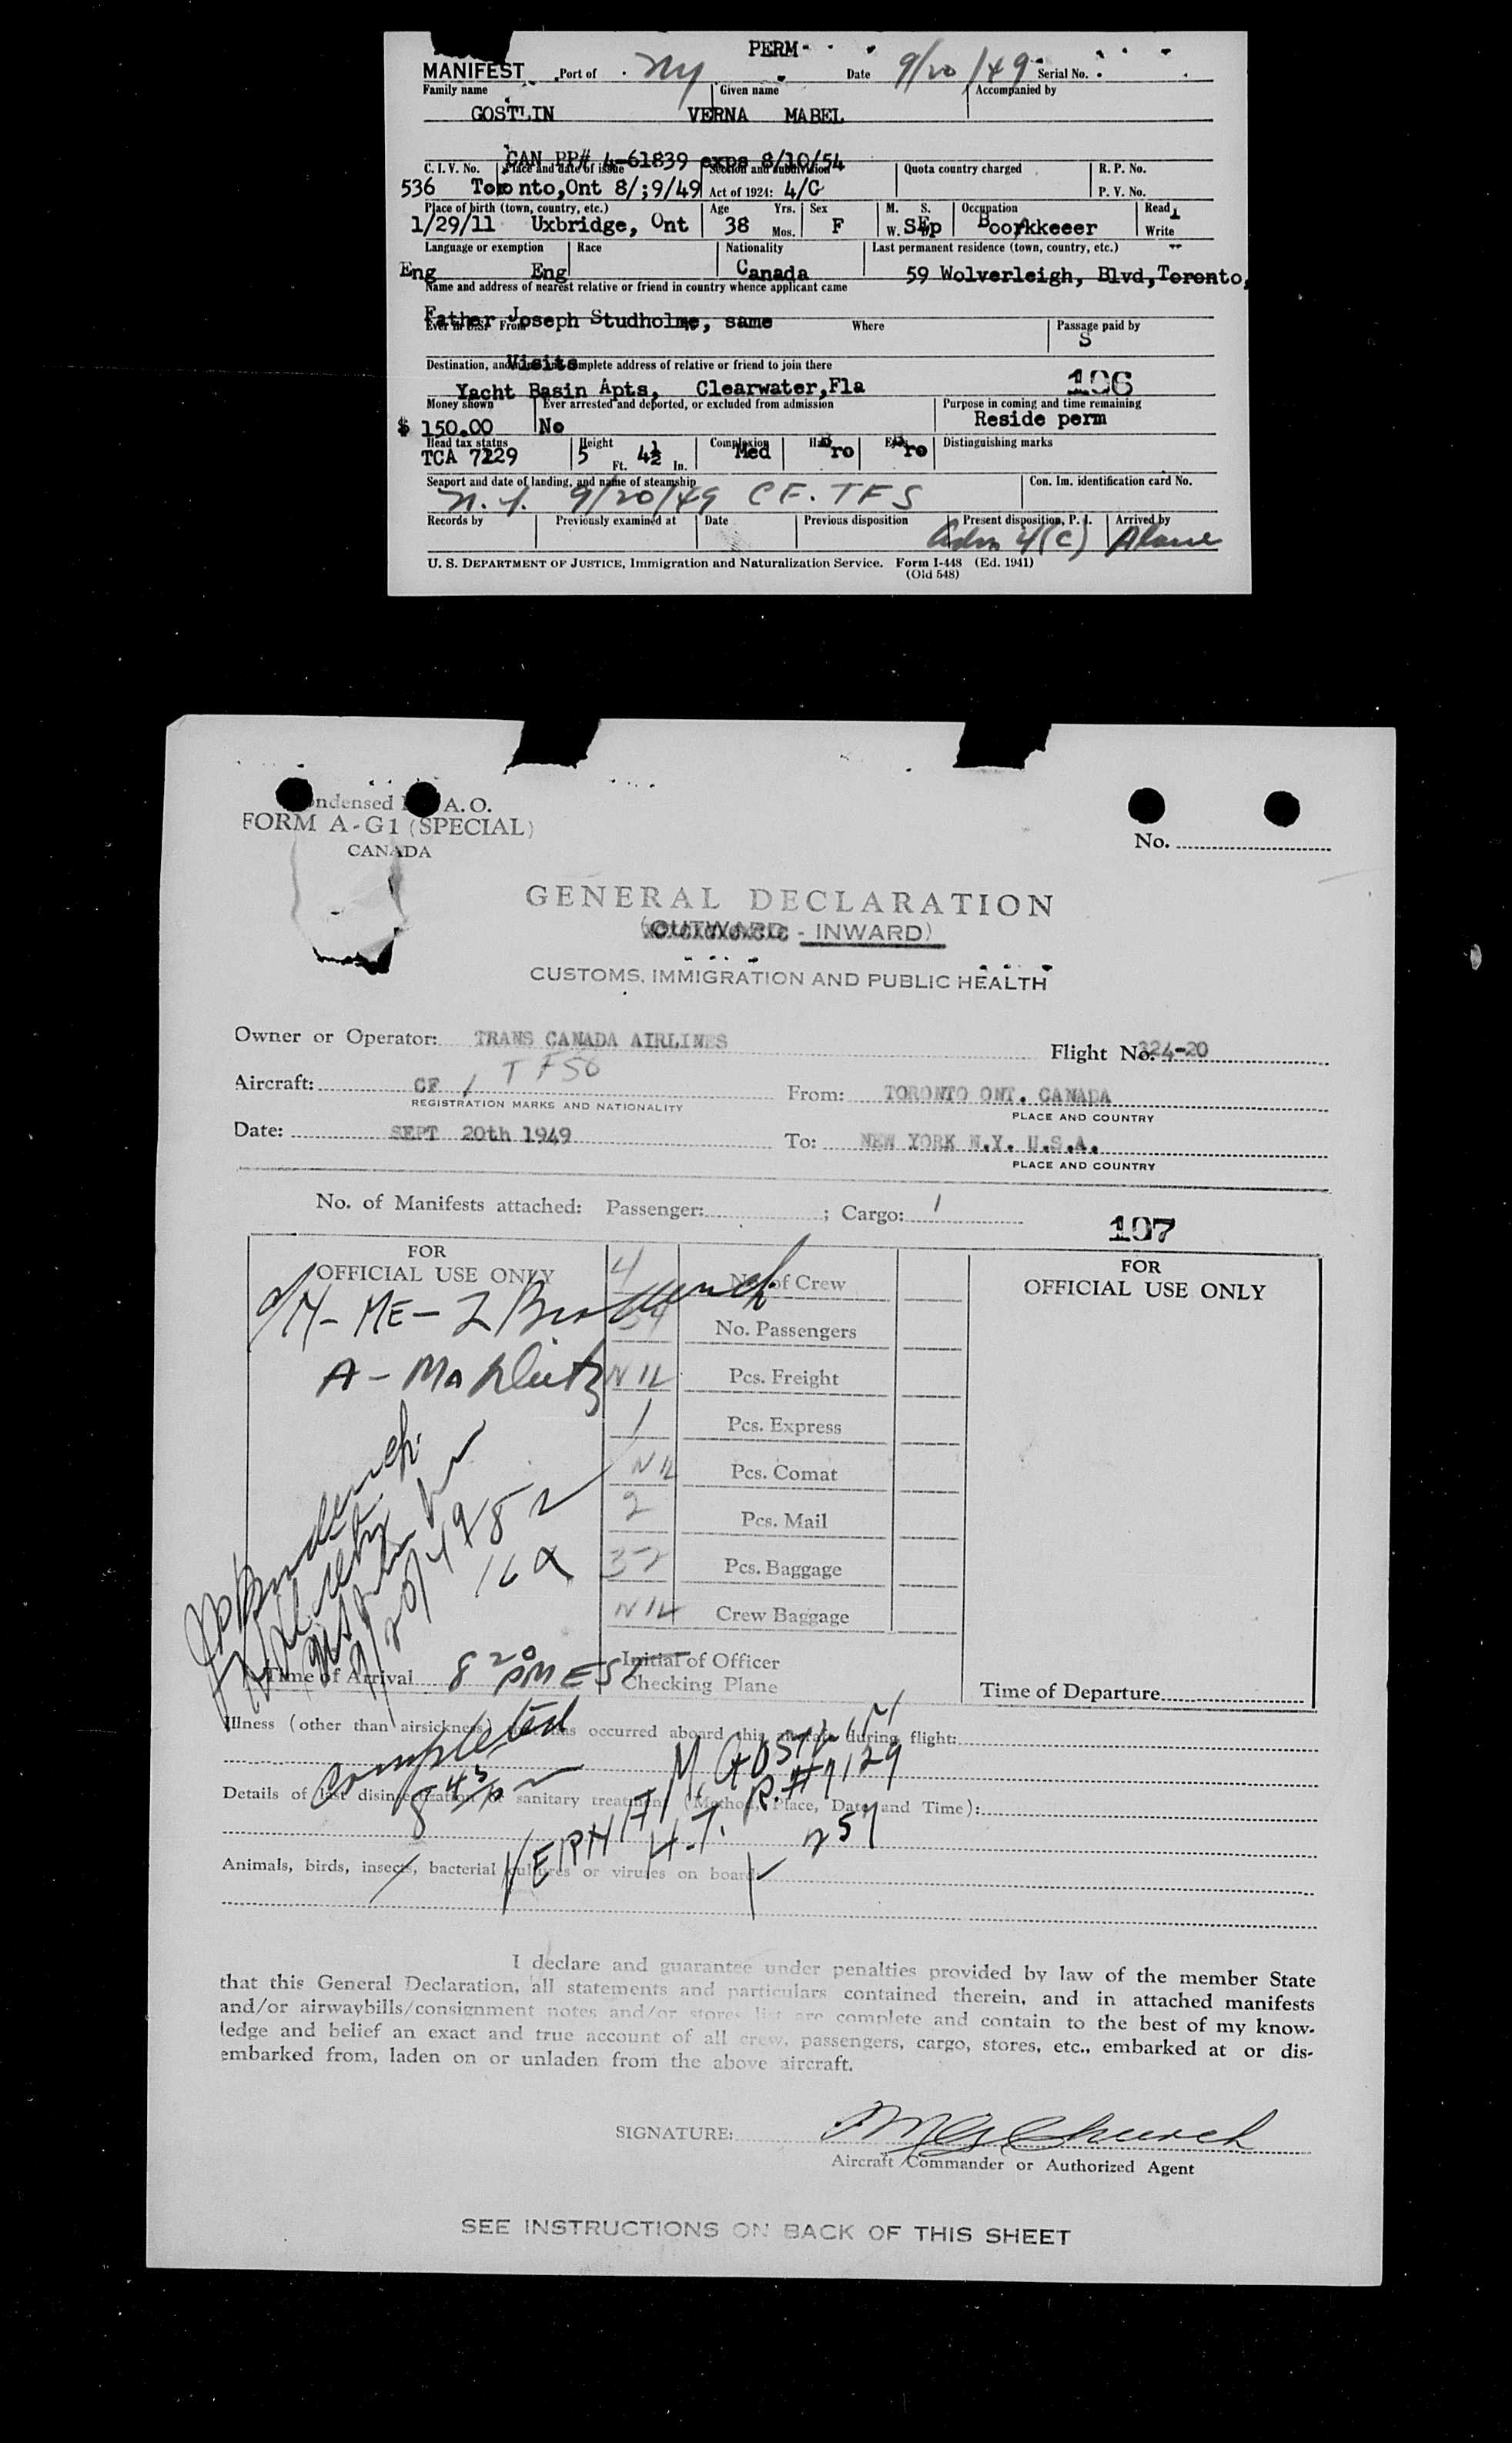 PERM
MANIFEST Port of NY Date 9/20/49 Serial No.
Family name Given name Accompanied by
GOSTLIN VERNA MABEL
CAN PP# 4-61839 exps 8/10/54
C. I. V. No. Place and date of issue Section and subdivision Quota country charged R. P. No.
536 Toronto,Ont 8/;9/49 Act of 1924: 4/C P. V. No.
Place of birth (town, country, etc.) Age Yrs. Sex M. S. Occupation Read
1/29/11 Uxbridge, Ont 38 Mos. F W. Sep Boorkkeeer Write
Language or exemption Race Nationality Last permanent residence (town, country, etc.)
Eng Eng Canada 59 Wolverleigh, Blvd,Toronto,
Name and address of nearest relative or friend in country whence applicant came
Father Joseph Studholme, same
Ever in U.S. From Where Passage paid by
S
Visits
Destination, and complete address of relative or friend to join there
Yacht Basin Apts, Clearwater,Fla 106
Money shown Ever arrested and deported, or excluded from admission Purpose in coming and time remaining
$ 150.00 No Reside perm
Head tax status Height Complexion Hair Eyes Distinguishing marks
TCA 7229 5 Ft. 4½ In. Med Bro Bro
Seaport and date of landing, and name of steamship Con. Im. identification card No.
N.Y. 9/20/49 CF. TFS
Records by Previously examined at Date Previous disposition Present disposition, P. I. Arrived by
Adm 4(c) Alone
U. S. DEPARTMENT OF JUSTICE, Immigration and Naturalization Service. Form I-448 (Ed. 1941)
(Old 548)
ndensed A. O.
FORM A-G1 (SPECIAL)
CANADA
No.
GENERAL DECLARATION
(OUTWARD - INWARD)
CUSTOMS, IMMIGRATION AND PUBLIC HEALTH
Owner or Operator: TRANS CANADA AIRLINES Flight No. 324-20
Aircraft: CF / TFSO From: TORONTO ONT. CANADA
REGISTRATION MARKS AND NATIONALITY PLACE AND COUNTRY
Date: SEPT 20th 1949 To: NEW YORK N.Y. U.S.A.
PLACE AND COUNTRY
No. of Manifests attached: Passenger: ; Cargo: 1
107
FOR
OFFICIAL USE ONLY
4 No. of Crew
No. Passengers
NIL Pcs. Freight
1 Pcs. Express
NIL Pcs. Comat
2 Pcs. Mail
32 Pcs. Baggage
NIL Crew Baggage
FOR
OFFICIAL USE ONLY
Time of Arrival 8 20 PM EST
Initial of Officer
Checking Plane
Time of Departure
Illness (other than airsickness) that has occurred aboard this aircraft during flight:
completed
8 45 p
Details of last disinsectization or sanitary treatment (Method, Place, Date and Time):
M. GOSTLIN
H.T. R.#7129
257
Animals, birds, insects, bacterial cultures or viruses on board
I declare and guarantee under penalties provided by law of the member State
that this General Declaration, all statements and particulars contained therein, and in attached manifests
and/or airwaybills/consignment notes and/or stores list are complete and contain to the best of my know-
ledge and belief an exact and true account of all crew, passengers, cargo, stores, etc., embarked at or dis-
embarked from, laden on or unladen from the above aircraft.
SIGNATURE: Church
Aircraft Commander or Authorized Agent
SEE INSTRUCTIONS ON BACK OF THIS SHEET